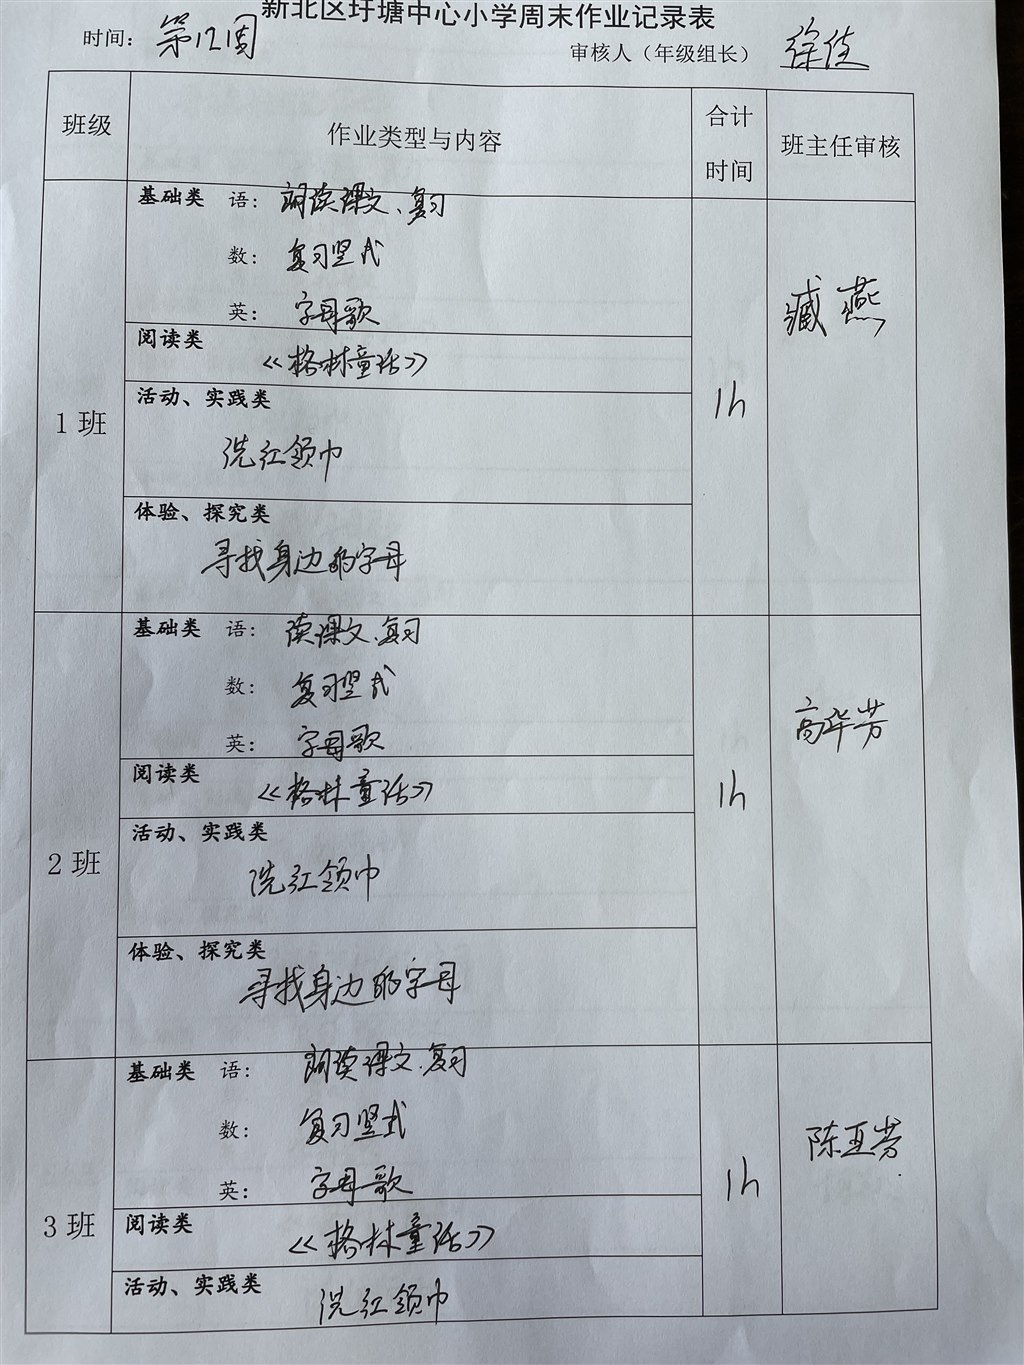 新北区圩塘中心小学周末作业记录表
时间： 第12周 审核人（年级组长） 徐佳
班级 作业类型与内容 合计时间 班主任审核
1班
基础类 语： 朗读课文、复习
数： 复习竖式
英： 字母歌
阅读类
《格林童话》
活动、实践类
洗红领巾
体验、探究类
寻找身边的字母
1h
臧燕
2班
基础类 语： 读课文、复习
数： 复习竖式
英： 字母歌
阅读类
《格林童话》
活动、实践类
洗红领巾
体验、探究类
寻找身边的字母
1h
高华芳
3班
基础类 语： 朗读课文、复习
数： 复习竖式
英： 字母歌
阅读类
《格林童话》
活动、实践类
洗红领巾
1h
陈亚芳